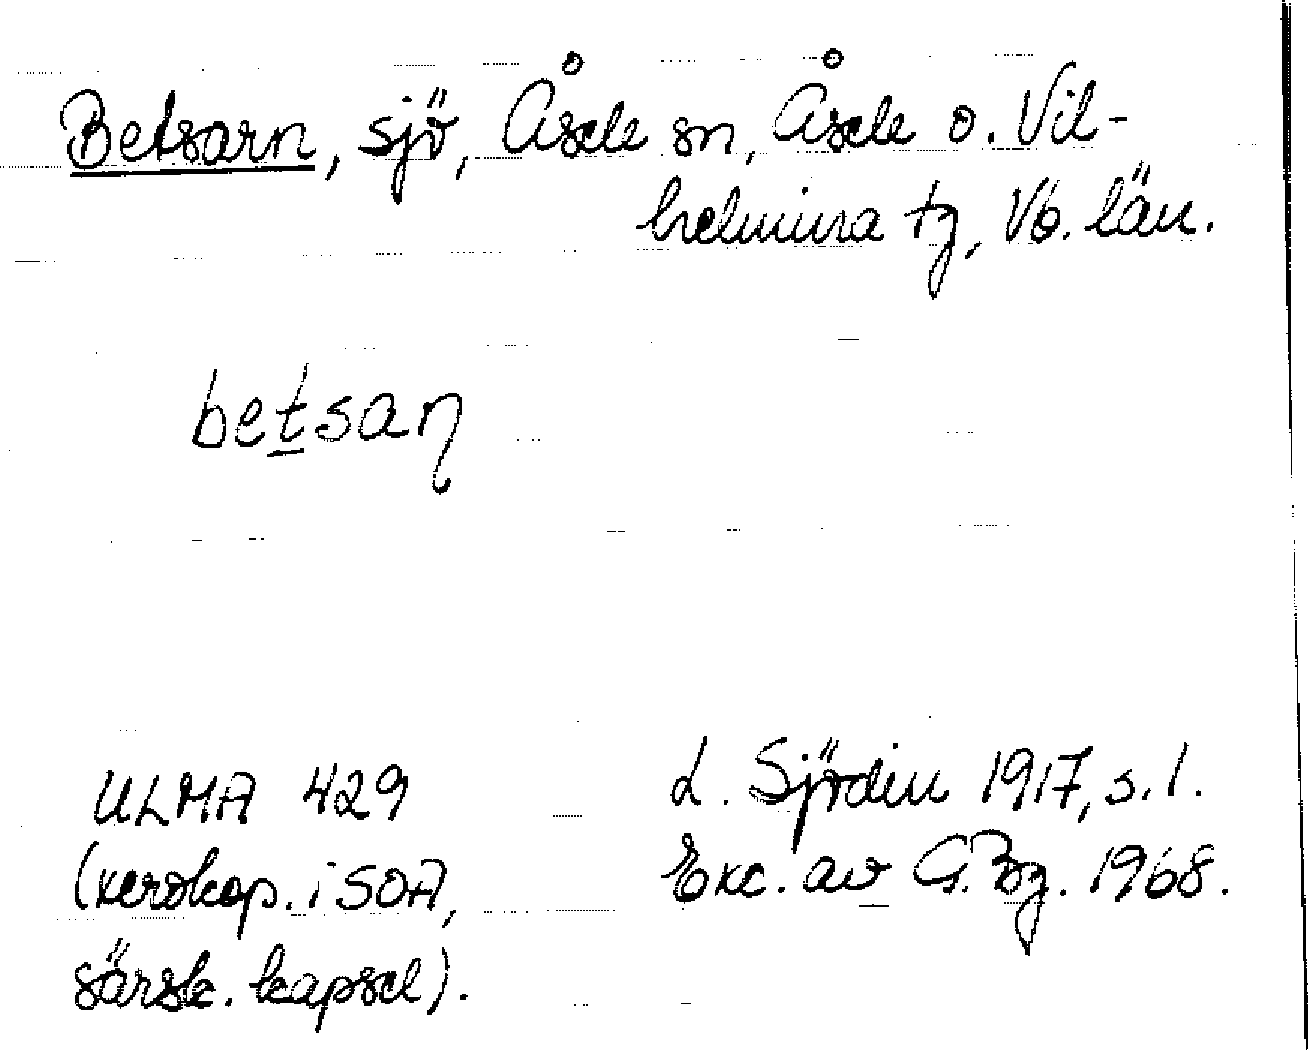 Betsarn, sjö, Åsele sn, Åsele o. Vil-
helmina tg, Vb. län.
betsaɳ
ULMA 429
(xerokop. i SOA,
särsk. kapsel).
L. Sjödin 1917, s. 1.
Exc. av G. Bg. 1968.